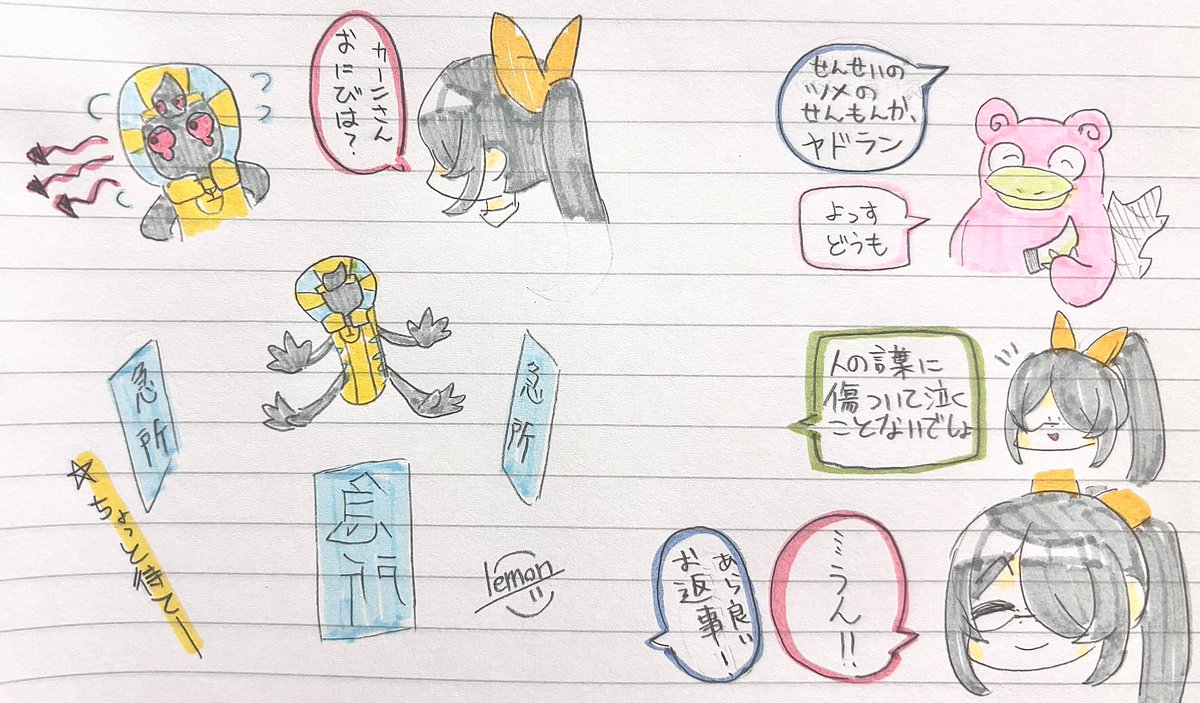 カーンさん
おにびは？
せんせいの
ツメの
せんもんか、
ヤドラン
よっす
どうも
急所
急所
急所
☆ちょっと待てー
lemon
人の言葉に
傷ついて泣く
ことないでしょ
うん!!
あら良い
お返事ー